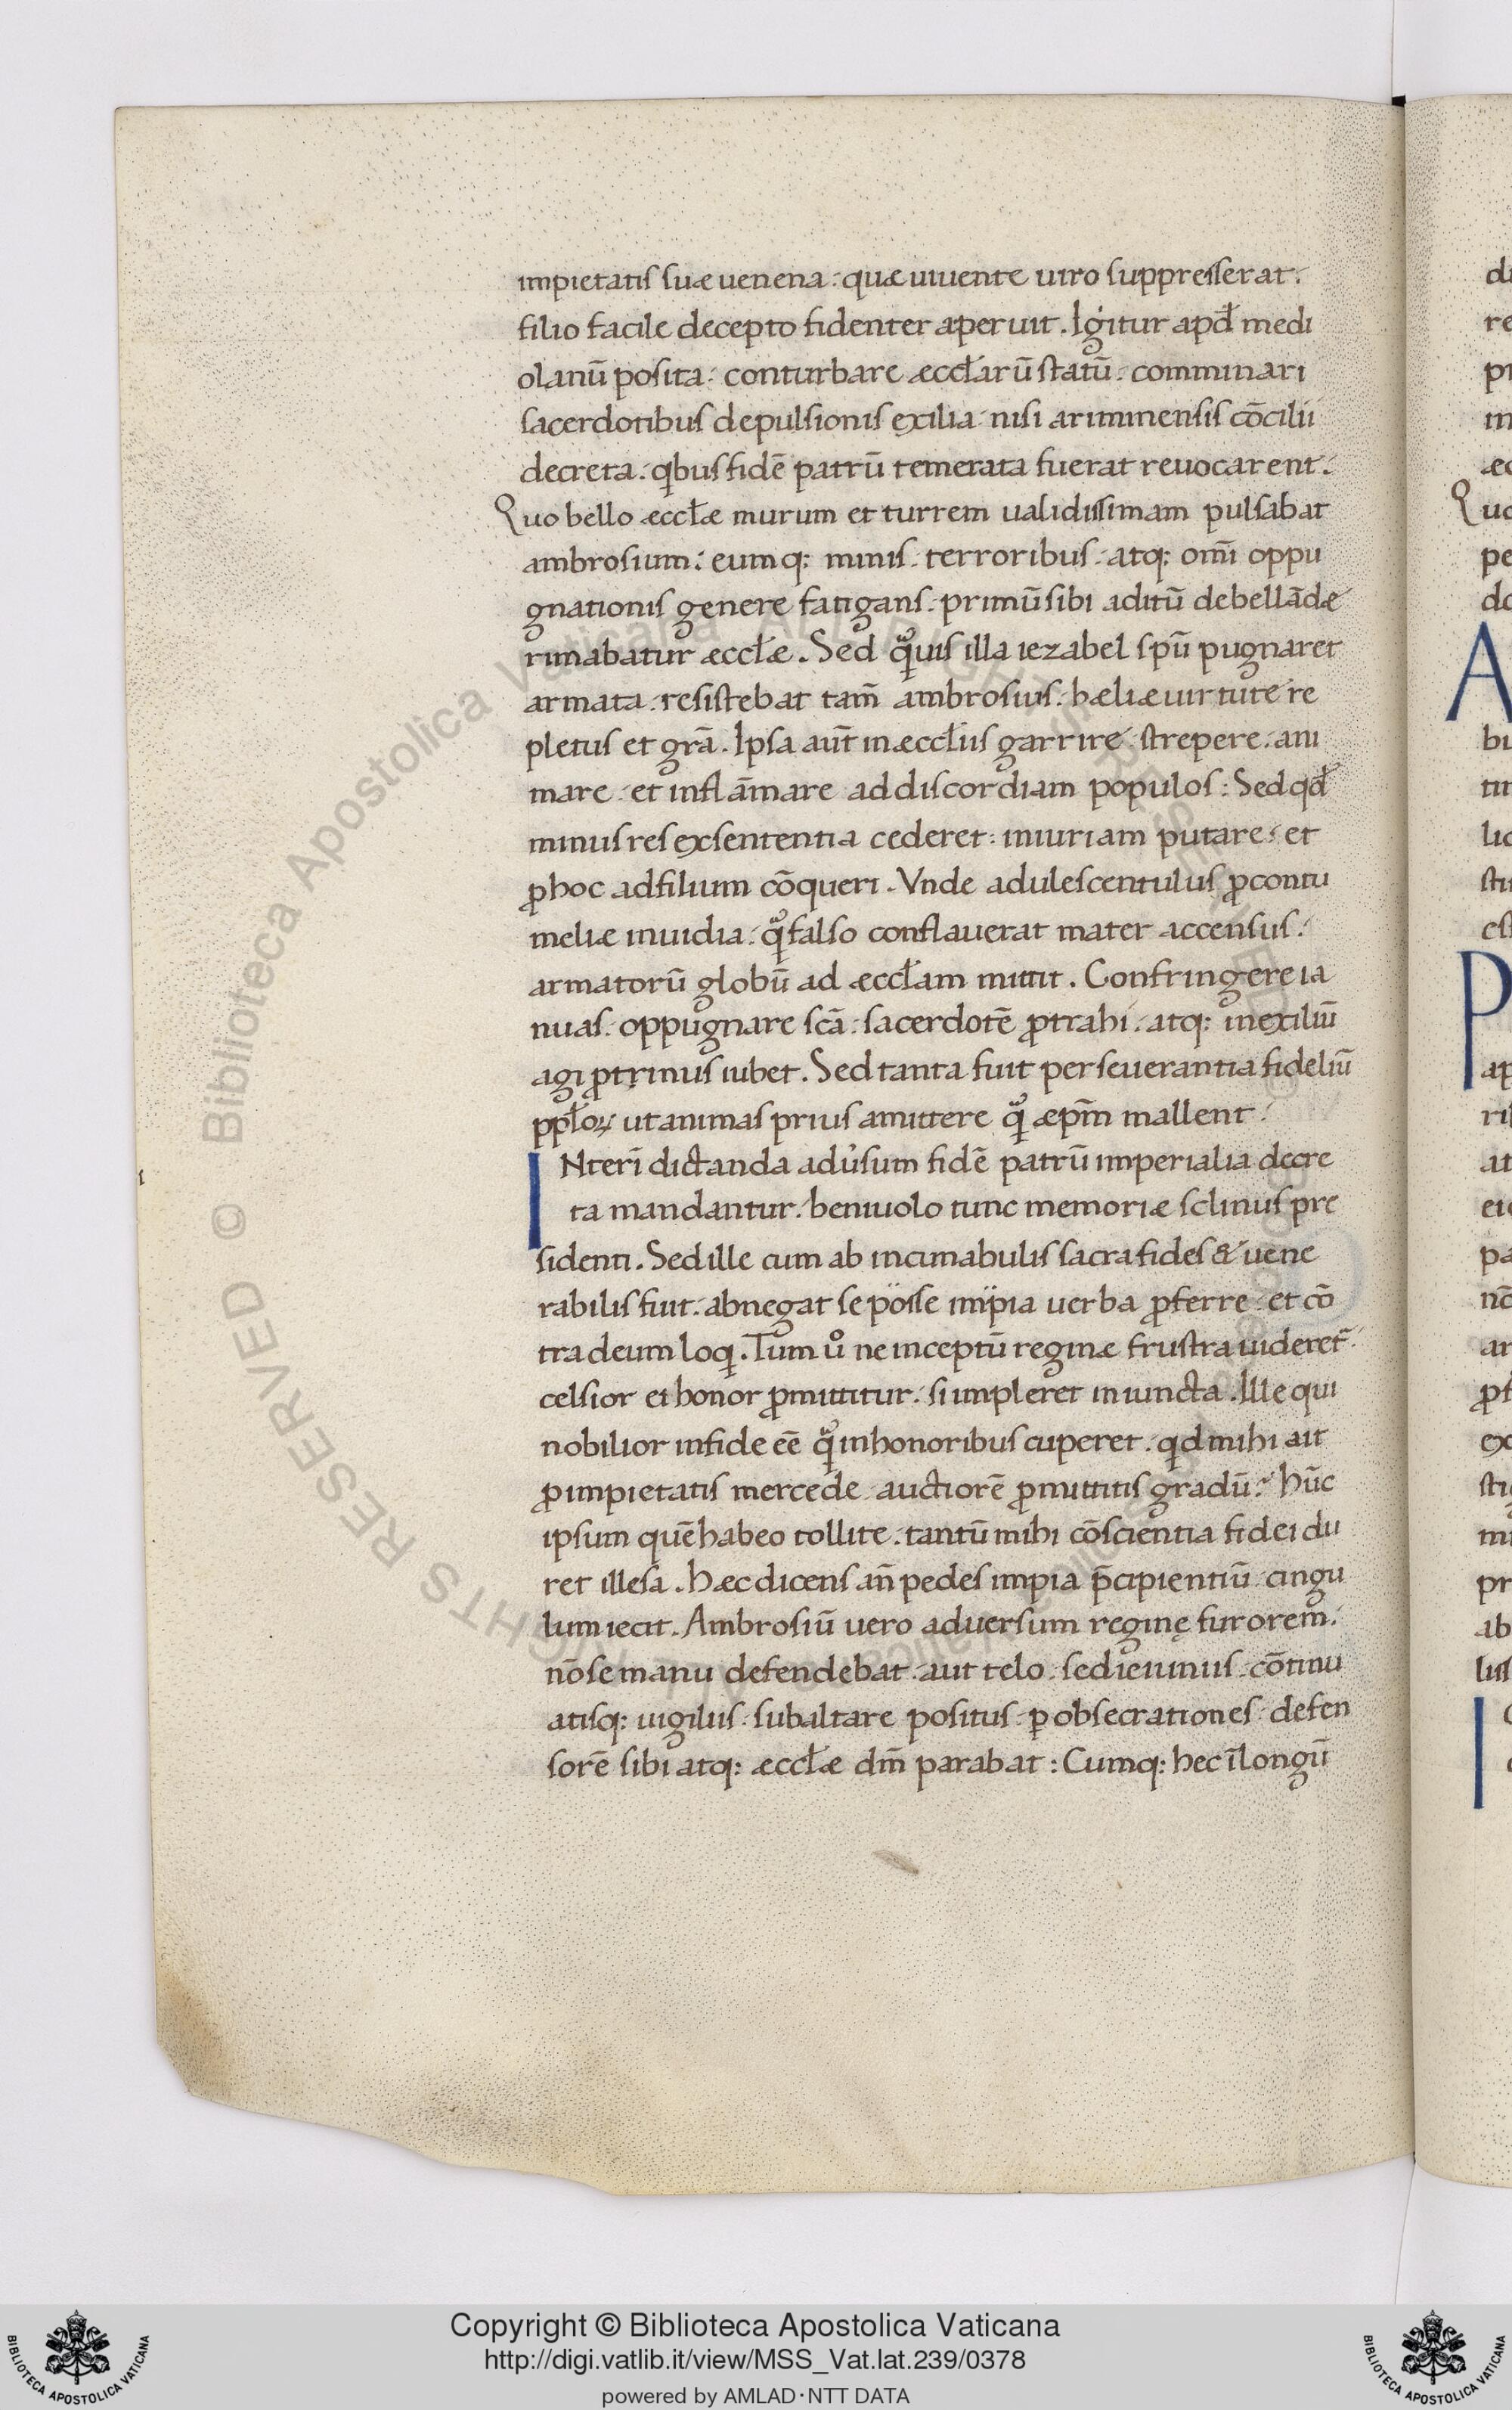 impietatis suæ uenena : quæ uiuente uiro suppresserat :
filio facile decepto fidenter aperuit . Igitur apđ medi
olanū posita : conturbare æccłarū statū : comminari
sacerdotibus depulsionis exilia : nisi ariminensis cōcilii
decreta : qbus fidē patrū temerata fuerat reuocarent :
Quo bello æccłæ murum et turrem ualidissimam pulsabat
ambrosium : eumq: minis : terroribus : atq: om̄i oppu
gnationis genere fatigans : primū sibi aditū debellādæ
rimabatur æccłæ . Sed qͣuis illa iezabel spū pugnaret
armata : resistebat tam̄ ambrosius : hæliæ uirtute re
pletus et grā . Ipsa aūt in æccłiis garrire : strepere : ani
mare : et inflāmare ad discordiam populos : Sed qđ
minus res ex sententia cederet : iniuriam putare : et
ꝓ hoc ad filium cōqueri . Vnde adulescentulus ꝓ contu
meliæ inuidia : qͣ falso conflauerat mater accensus :
armatorū globū ad æccłam mittit . Confringere ia
nuas : oppugnare scā : sacerdotē ꝓtrahi : atq: in exiliū
agi ꝓtrinus iubet . Sed tanta fuit perseuerantia fideliū
ppłoꝝ ut animas prius amittere qͣ æpm̄ mallent :
INteri̅ dictanda aduͥsum fidē patrū imperialia decre
ta mandantur : beniuolo tunc memoriæ sclinus pre
sidenti . Sed ille cum ab incunabulis sacra fides & uene
rabilis fuit : abnegat se posse impia uerba ꝓferre : et cō
tra deum loq . Tum uͦ ne inceptū reginæ frustra uideret̄ :
celsior ei honor ꝓmittitur : si impleret iniuncta . Ille qui
nobilior in fide eē qͣ in honoribus cuperet : qd mihi ait
ꝓ impietatis mercede auctiorē ꝓmittitis gradū : hūc
ipsum quē habeo tollite : tantū mihi cōscientia fidei du
ret illesa . Hæc dicens an̄ pedes impia p̄cipientiū : cingu
lum iecit . Ambrosiū uero aduersum reginę furorem :
nō se manu defendebat : aut telo : sed ieiuniis : cōtinu
atisq: uigiliis : sub altare positus : ꝑ obsecrationes : defen
sorē sibi atq: æccłæ dm̄ parabat : Cumq: hec ī longū
Copyright © Biblioteca Apostolica Vaticana
http://digi.vatlib.it/view/MSS_Vat.lat.239/0378
powered by AMLAD·NTT DATA